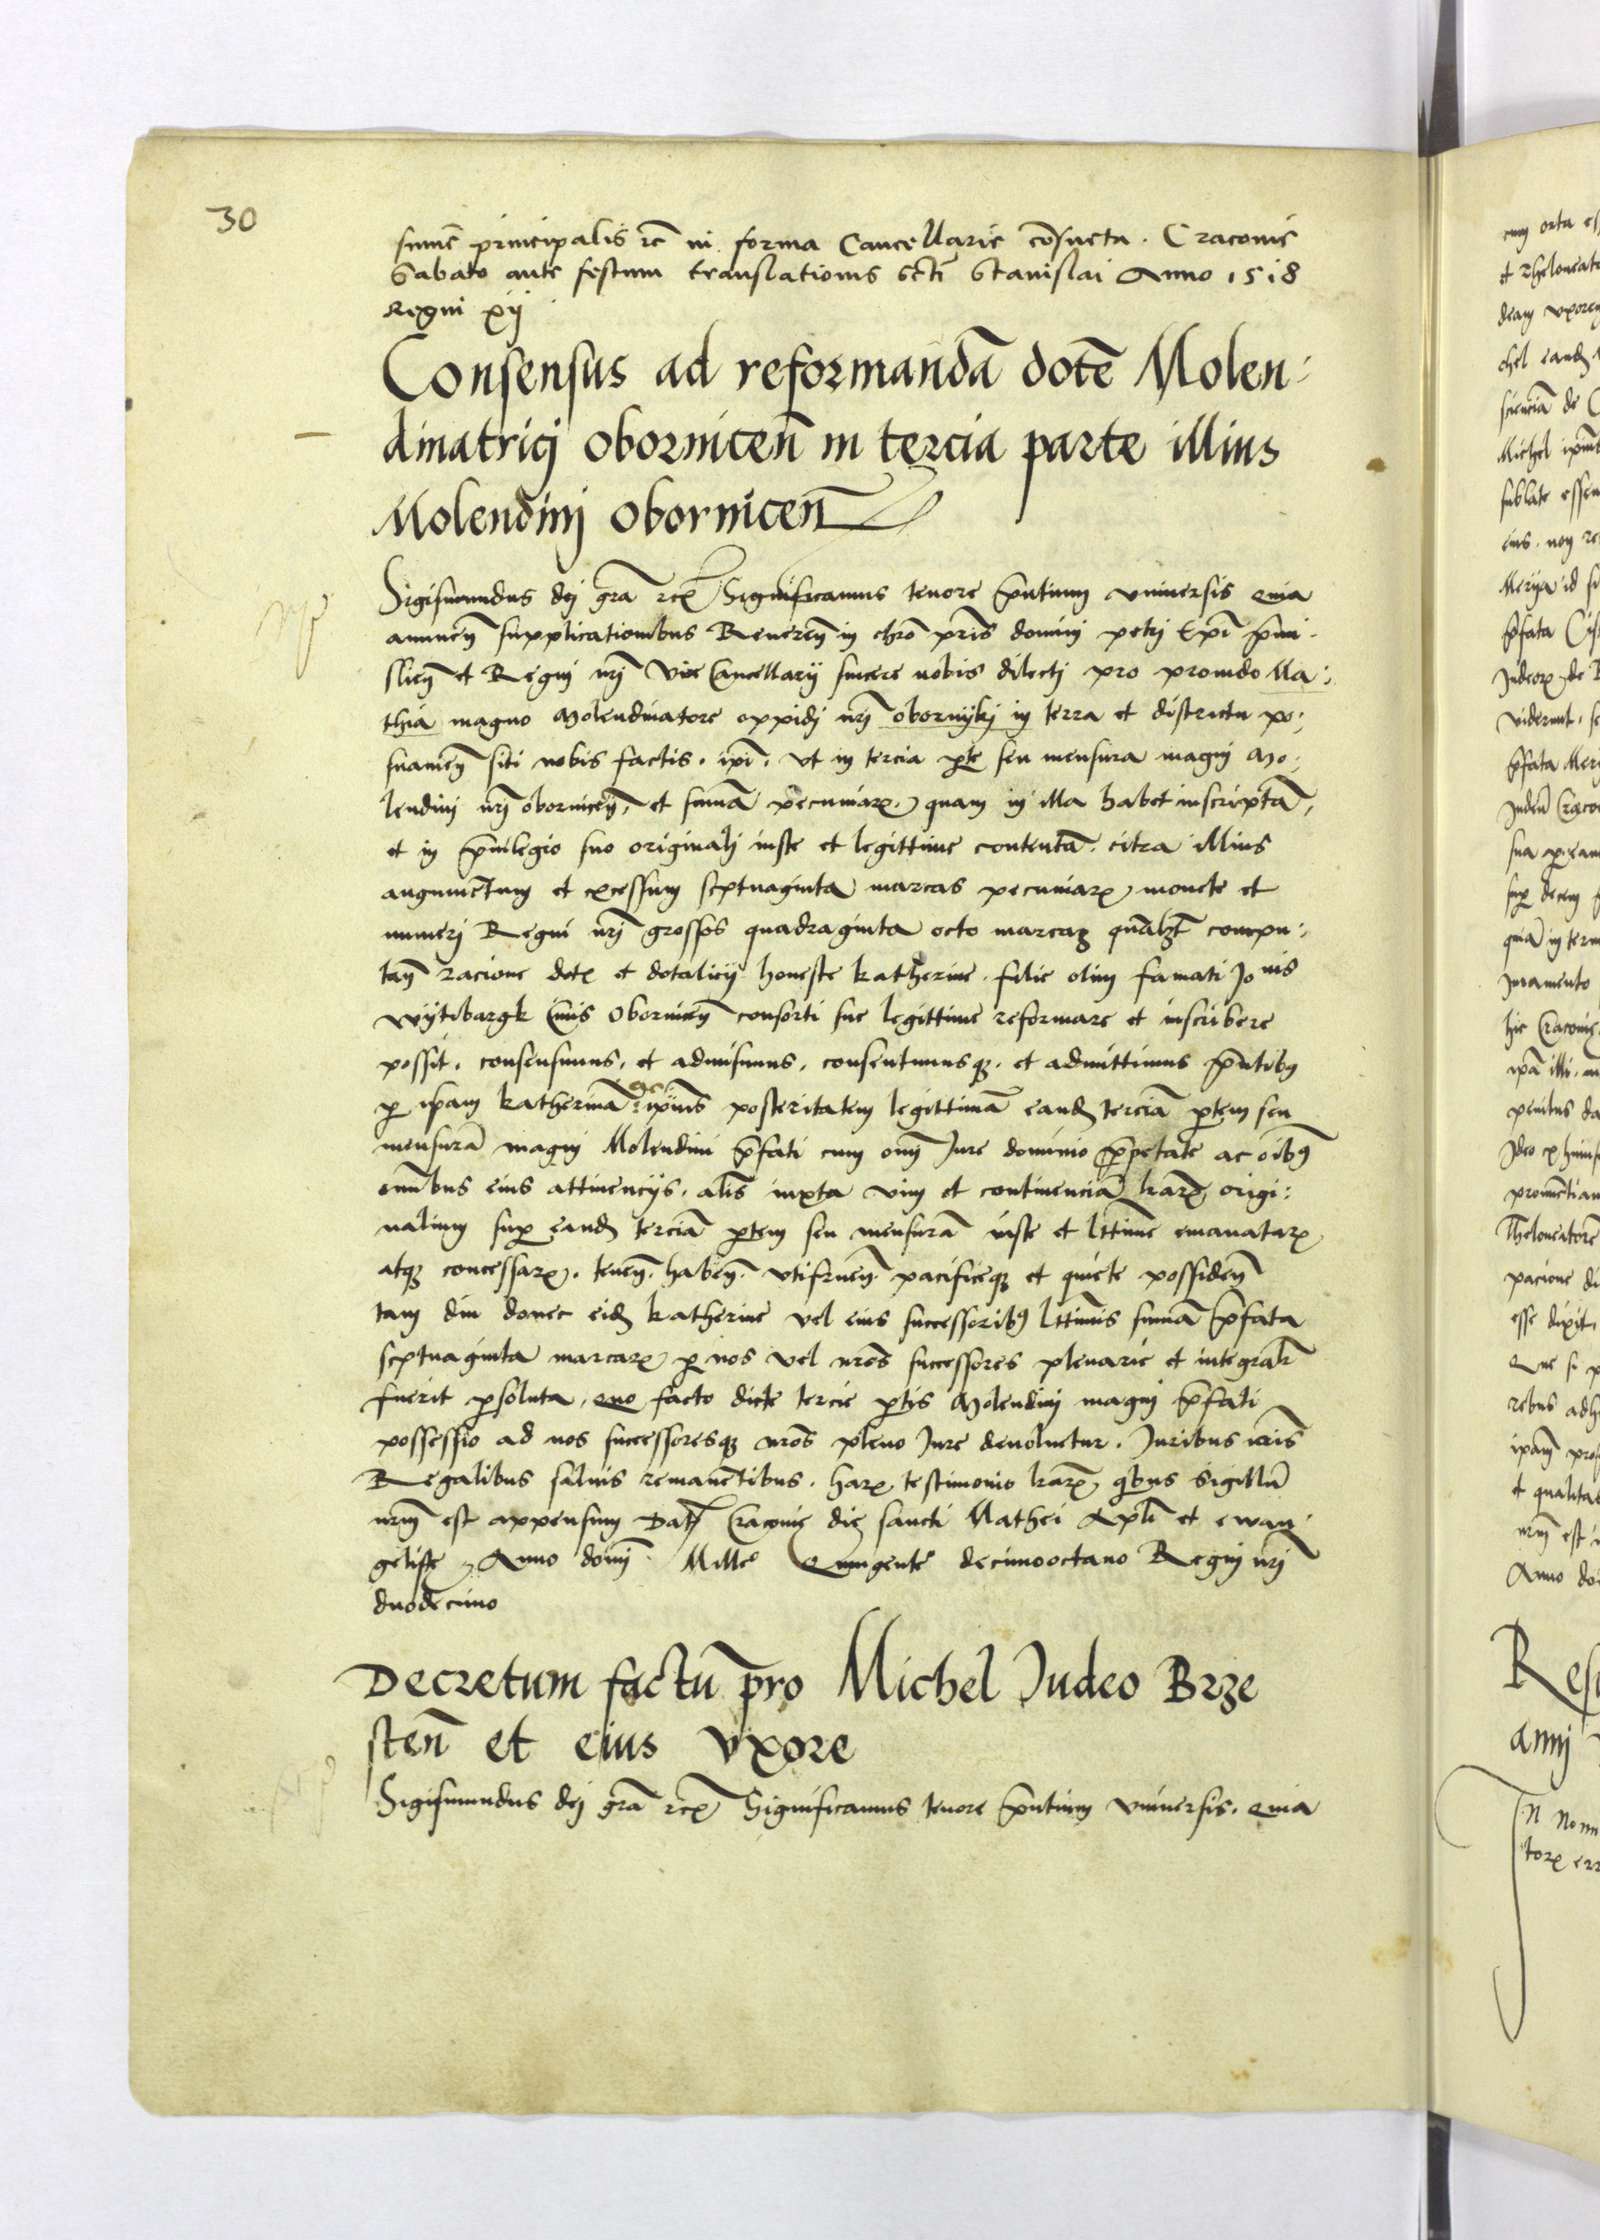 30
sume principalis etc in forma Cancellarie cōsueta. Cracovie
Sabato ante festum translationis scti Stanislai Anno 1518
Regni xij
Consensus ad reformandā dotē Molen:
dinatricj obornicen̄ in tercia parte illius
Molendinj obornicen̄
Sigismundus dej grā etc Significamus tenore p̄ntium vniversis quia
annuen̄ supplicationibus Reveren̄ in chrō pris dominj petrj Epi p̄mi.
slien̄ et Regnj nrj vice Cancellarij sincere nobis dilectj pro provido Ma:
thia magno Molendinatore oppidj nrj obornijkj in terra et districtu po:
snanien̄ siti nobis factis. ipī. vt in tercia pte seu mensura magnj Mo:
lendini nrj obornicen̄, et sūmā pecuniar, quam in illa habet inscriptā,
et in p̄vilegio suo originalj iuste et legittime contentā. citra illius
augmentum et excessum septuaginta marcas pecuniar monete et
numerj Regni nrj grossos quadraginta octo marcaz qūalzt compu:
tan̄ racione dotz et dotalicij honeste katherine. filie olim famati Jo nis
wijtibargk Civis Obornicen̄ consorti sue legittime reformare et inscribere
possit. consensimus. et admisimus. consentimusqz. et admittimus p̄ntibz
p ipsam katherinā ipius posteritatem legittimā eandz terciā ptem seu
mensurā magnj Molendini p̄fati cum omj Jure dominio p̄prietate ac oībz
omībus eius attinencijs. alīs iuxta vim et continenciā lrarz origi:
nalium sup eandz terciā ptem seu mensurā iuste et lttime emanatarz
atqz concessarz. tenen̄. haben̄. vtifruen̄. pacificeqz et quiete possiden̄
tam diu donec eidz katherine vel eius successoribz lttimis sūmā p̄fata
septuaginta marcarz p nos vel nros successores plenarie et integralr
fuerit psoluta. quo facto dicte tercie ptis Molendinj magnj p̄fati
possessio ad nos successoresqz nros pleno Jure devoluetur. Juribus nris
Regalibus salvis remanētibus. harz testimonio lrarz, qbus Sigillū
nrm est appensum Datz Cracovie die sancti Mathei Apli et ewan:
geliste Anno domj. Mille° Quingente° decimooctavo Regnj nrj
duodecimo
Decretum factū pro Michel Judeo Brze
sten̄ et eius vxore
Sigismundus dej grā etc Significamus tenore p̄ntium vniversis. quia